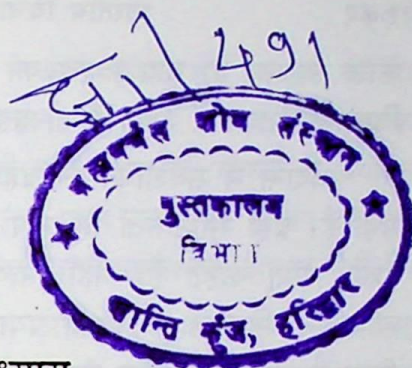 491
ब्रह्मवर्चस शोध संस्थान
पुस्तकालय
विभाग
शान्ति कुंज, हरिद्वार